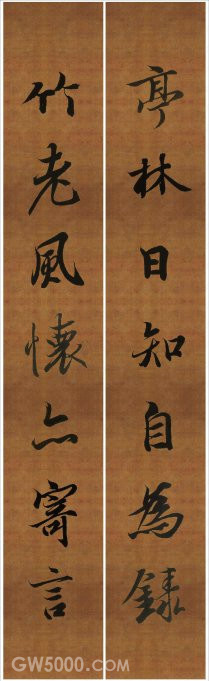 亭林日知自為錄
竹老風懷亦寄言
GW5000.COM